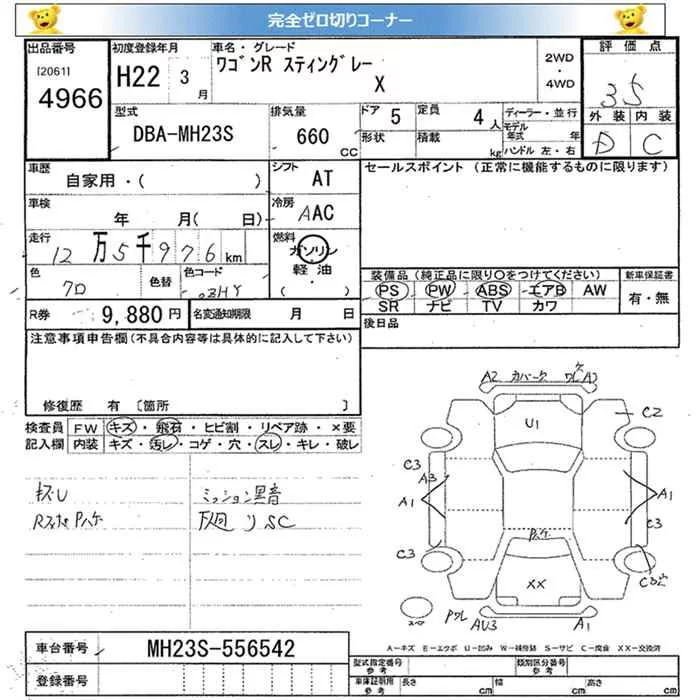 完全ゼロ切りコーナー
出品番号
[2061]
4966
初度登録年月
H22 3月
車名・グレード
ワゴンR スティングレー
X
2WD
・
4WD
評価点
3.5
外装 内装
D C
型式
DBA-MH23S
排気量
660 CC
ドア 5
定員 4人
形状
積載 kg
ディーラー・並行
モデル年式 年
ハンドル 左・右
車歴
自家用・( )
シフト AT
セールスポイント (正常に機能するものに限ります)
車検
年 月( 日)
冷房 AAC
走行
12万5千976km
燃料
ガソリン
軽油
( ・ )
色
色替
色コード
装備品 (純正品に限り○をつけてください)
新車保証書
PS PW ABS エアB AW
有・無
SR ナビ TV カワ
R券 9,880円
名変通知期限 月 日
後日品
注意事項申告欄(不具合内容等は具体的に記入して下さい)
修復歴 有 〔箇所 〕
検査員記入欄
FW キズ・飛石・ヒビ割・リペア跡・×要
内装 キズ・汚レ・コゲ・穴・スレ・キレ・破レ
ミッション異音
下廻りSC
A2 カバーク
U1
C2
C3
A3
A1
A1
C3
C3
XX
AU3
A1
A-キズ E-エクボ U-凹み W-補修跡 S-サビ C-腐食 XX-交換済
車台番号 MH23S-556542
登録番号
型式指定番号 参考
類別区分番号 参考
車庫証明用 参考
長さ cm
幅 cm
高さ cm